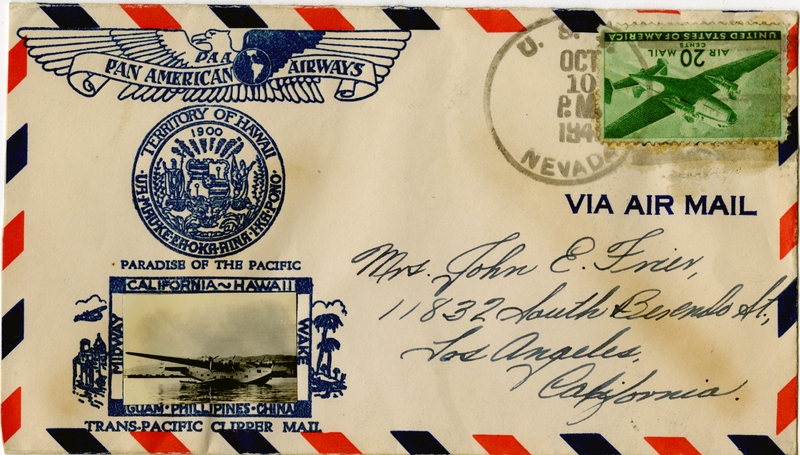 PAA
PAN AMERICAN AIRWAYS
TERRITORY OF HAWAII
1900
UA MAU KE EA O KA AINA I KA PONO
PARADISE OF THE PACIFIC
CALIFORNIA ~ HAWAII
MIDWAY
WAKE
GUAM · PHILLIPINES · CHINA
TRANS-PACIFIC CLIPPER MAIL
U. S.
OCT
10
P.M.
NEVADA
UNITED STATES OF AMERICA
AIR MAIL
20 CENTS
VIA AIR MAIL
Mrs. John E. Frier,
11832 South Berendo St.,
Los Angeles,
California.